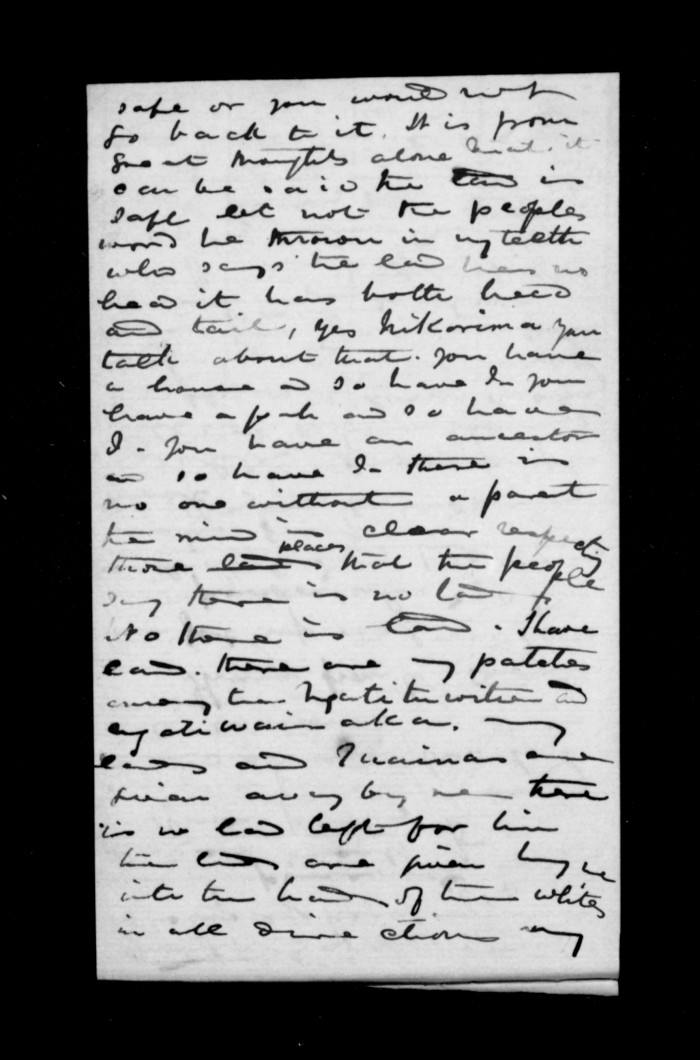 safe or you would not
go back to it. It is from
great thoughts alone that it
can be said the land is
safe let not the peoples
word be thrown in my teeth
who says the land has no
head it has both head
and tail, yes Nikorima you
talk about that. you have
a house and so have I. you
have a pah and so have
I. you have an ancestor
and so have I. there is
no one without a parent
the mind is clear respecting
those places that the people
say there is no land
No there is land. I have
land. there are my patches
among the Ngatituwitia and
ngatiwairaka. my
lands and are
given away by me there
is no land left for him
the lands are given by me
into the hands of the whites
in all directions my